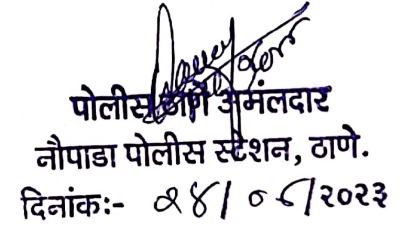 पोलीस ठाणे अंमलदार
नौपाडा पोलीस स्टेशन, ठाणे.
दिनांकः- २४/०८/२०२३